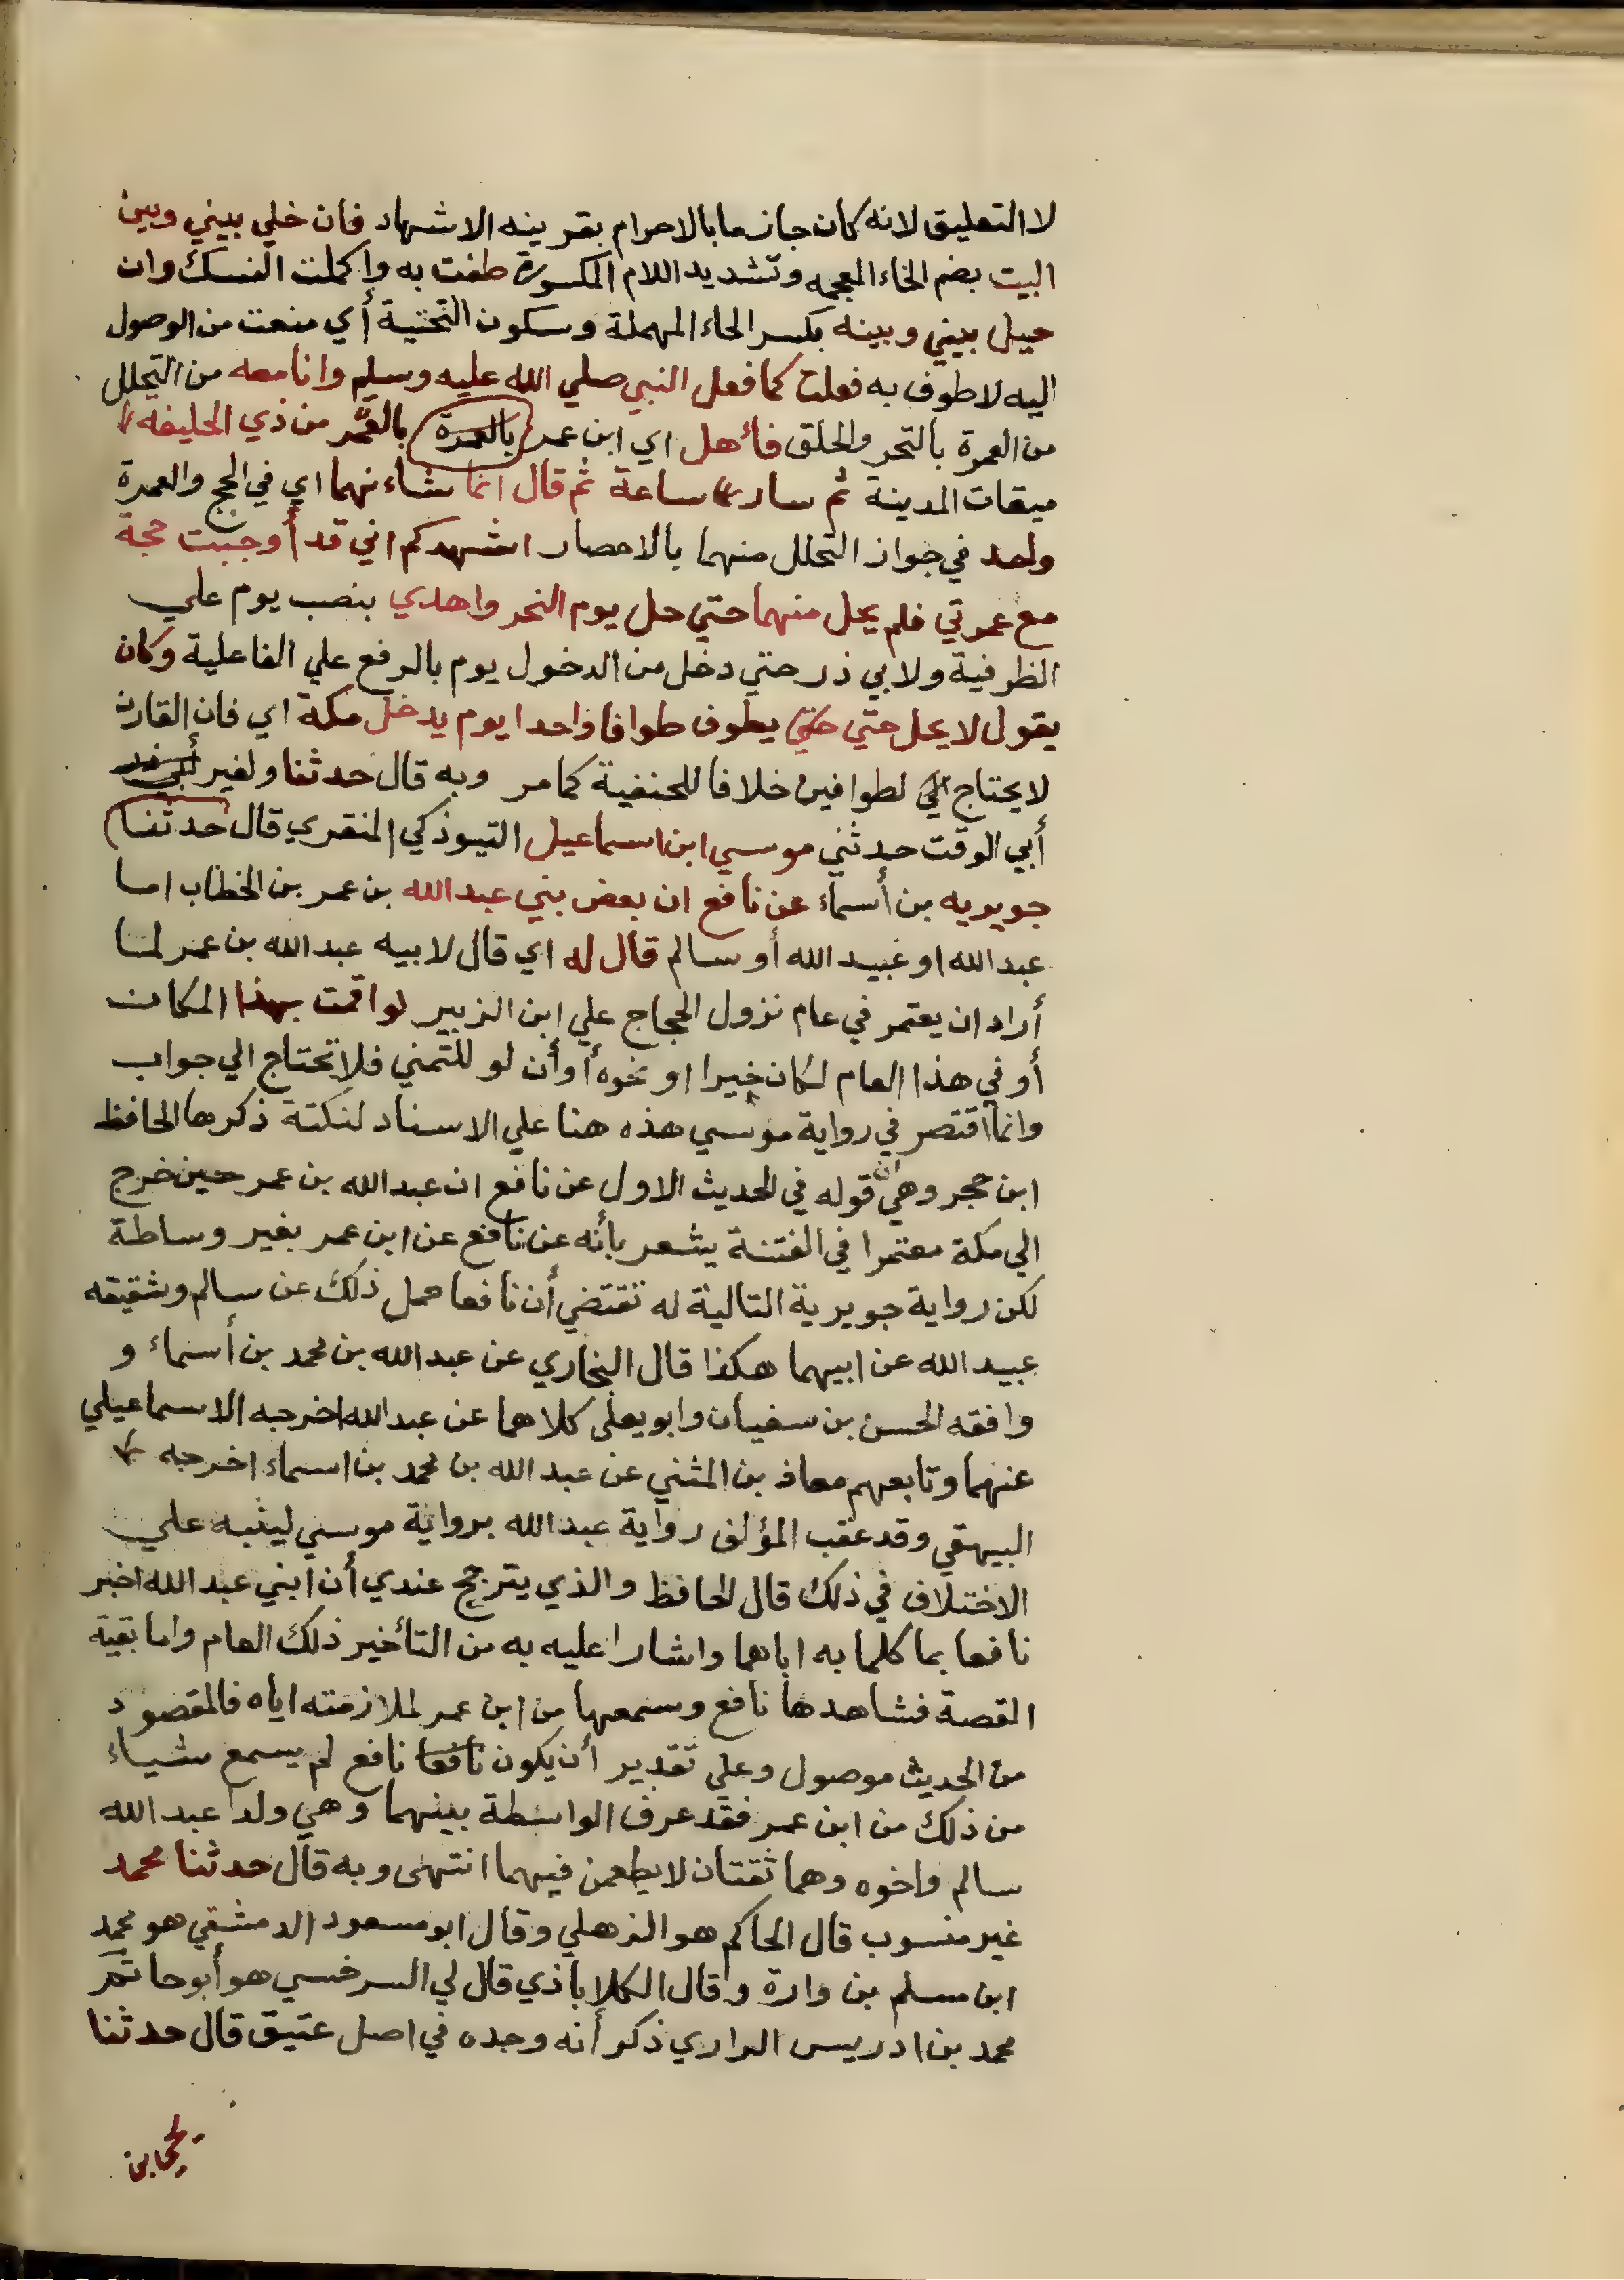 لا التعليق لانه كان جازما بالاحرام بقرينه الاشهاد فان خلي بيني وبين
البيت بضم الخاء المعجمه وتشديد اللام المكسورة طفت به واكملت النسك وان
حيل بيني وبينه بكسر الحاء المهملة وسكون التحتية أي منعت من الوصول
اليه لاطوف به فعلت كما فعل النبي صلي الله عليه وسلم وانا معه من التحلل
من العمرة بالنحر والحلق فأهل اي ابن عمر بالعمرة بالعمر من ذي الحليفه
ميقات المدينة ثم سار ساعة ثم قال انما شاءنهما اي في الحج والعمرة
واحد في جواز التحلل منهما بالاحصار اشهدكم اني قد أوجبت حجة
مع عمرتي فلم يحل منهما حتي حل يوم النحر واهدي بنصب يوم علي
الظرفية ولابي ذر حتي دخل من الدخول يوم بالرفع علي الفاعلية وكان
يقول لا يحل حتي حتي يطوف طوافا واحدا يوم يدخل مكة اي فان القارن
لا يحتاج الي لطوافين خلافا للحنفية كما مر وبه قال حدثنا ولغير أبي ذر
أبي الوقت حدثني موسي ابن اسماعيل التبوذكي المنقري قال حدثنا
جويريه بن أسماء عن نافع ان بعض بني عبد الله بن عمر بن الخطاب اما
عبد الله او عبيد الله أو سالم قال له اي قال لابيه عبد الله بن عمر لما
أراد ان يعتمر في عام نزول الحجاج علي ابن الزبير لو اقمت بهذا المكان
أو في هذا العام لكان خيرا او نحوه أو أن لو للتمني فلا تحتاج الي جواب
وانما اقتصر في رواية موسي هذه هنا علي الاسناد لنكتة ذكرها الحافظ
ابن حجر وهي ان قوله في الحديث الاول عن نافع ان عبد الله بن عمر حين خرج
الي مكة معتمرا في الفتنة يشعر بأنه عن نافع عن ابن عمر بغير وساطة
لكن رواية جويرية التالية له تقتضي أن نافعا حمل ذلك عن سالم وشقيقه
عبيد الله عن ابيهما هكذا قال البخاري عن عبد الله بن محمد بن أسماء و
وافقه الحسن بن سفيان وابو يعلي كلاهما عن عبد الله اخرجه الاسماعيلي
عنهما وتابعهم معاذ بن المثني عن عبد الله بن محمد بن اسماء اخرجه
البيهقي وقد عقب المؤلف رواية عبد الله برواية موسي لينبه علي
الاختلاف في ذلك قال الحافظ والذي يترجح عندي أن ابني عبد الله اخبر
نافعا بما كلما به اباهما واشارا عليه به من التأخير ذلك العام واما بقية
القصة فشاهدها نافع وسمعها من ابن عمر لملازمته اياه فالمقصود
من الحديث موصول وعلي تقدير أن يكون نافعا نافع لم يسمع شياء
من ذلك من ابن عمر فقد عرف الواسطة بينهما وهي ولدا عبد الله
سالم واخوه وهما ثقتان لا يطعن فيهما انتهى وبه قال حدثنا محمد
غير منسوب قال الحاكم هو الذهلي وقال ابو مسعود الدمشقي هو محمد
ابن مسلم بن وارة وقال الكلاباذي قال لي السرخسي هو أبو حاتم
محمد بن ادريس الراري ذكر أنه وجده في اصل عتيق قال حدثنا
يحيى بن